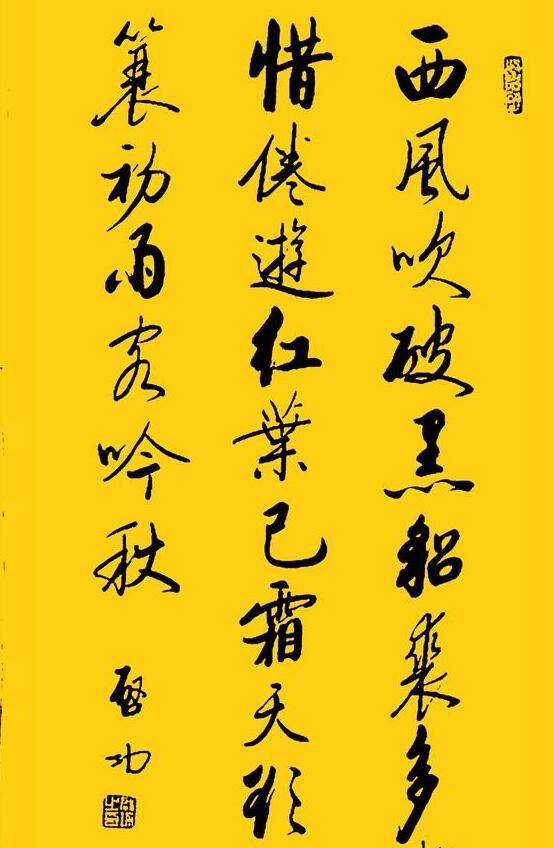 西風吹破黑貂裘多
惜倦遊紅葉已霜天欲
簑初雨客吟秋
啓功